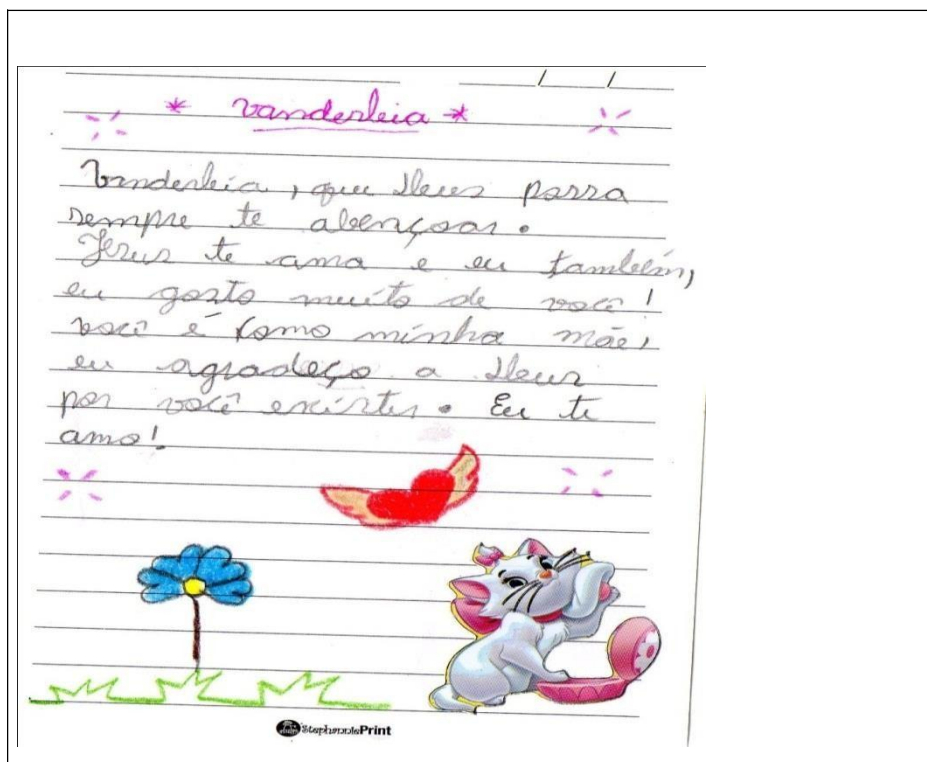 * Vanderleia *
Vanderleia, que Deus possa
sempre te abençoar.
Jesus te ama e eu também,
eu gosto muito de você!
você é como minha mãe,
eu agradeço a Deus
por você existir. Eu te
amo!
StephanniePrint